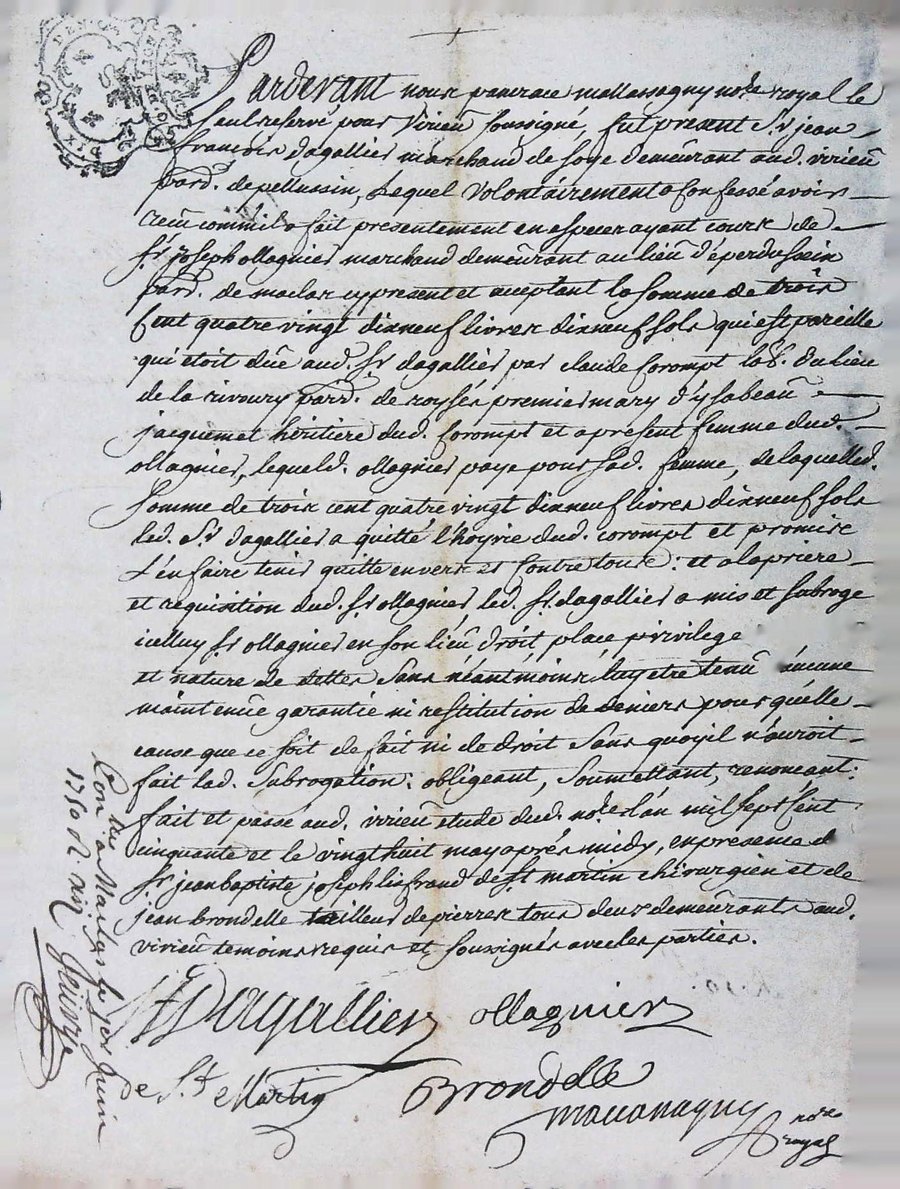 Pardevant nous pancrace mallassagny no.re royal le
seul reservé pour Virieu soussigné, fut present S.r jean
françois dagallier marchand de soye demeurant aud. virieu
parr. de pellussin, Lequel Volontairement a confessé avoir
receu comm'il a fait presentement en especes ayant cours de
s.r joseph ollagnier marchand demeurant au lieu d'éperdussein
parr. de maclas cy present et aceptant la somme de trois
cent quatre vingt dixneuf livres dixneuf sols qui est pareille
qui étoit düe aud. s.r dagallier par claude corompt lab. du lieu
de la rivoury parr. de roysés premier mary d'ysabeau
jacquemet héritiere dud. corompt et apresent femme dud.
ollagnier, lequel d. ollagnier paye pour sad. femme, de laquelled.
somme de trois cent quatre vingt dixneuf livres dixneuf sols
led. S.r dagallier a quitté l'hoyrie dud. corompt et promise
L'en faire tenir quitte envers et contre tous: et a la priere
et requisition dud. s.r ollagnier, led. s.r dagallier a mis et subrogé
icelluy s.r ollagnier en son lieu droit place, privilege
et nature de dettes sans néantmoins luy etre tenu aucune
maintenüe garantie ni restitution de deniers pour quelle
cause que ce soit de fait ni de droit sans quoy il n'auroit
fait lad. subrogation: obligeant, soumettant, renonçant:
fait et passé aud. virieu etude dud. no.re l'an mil sept cent
cinquante et le vingt huit may aprés midy, en presence de
s.r jean baptiste joseph lisfrand de S.t martin chirurgien et de
jean brondelle tailleur de pierres tous deux demeurants aud.
virieu temoins requis et soussignés avec les parties.
Dagallier ollagnier
de S.t Martin Brondelle
no.re
royal
Con.lé a Maclas le 7er juin
1750